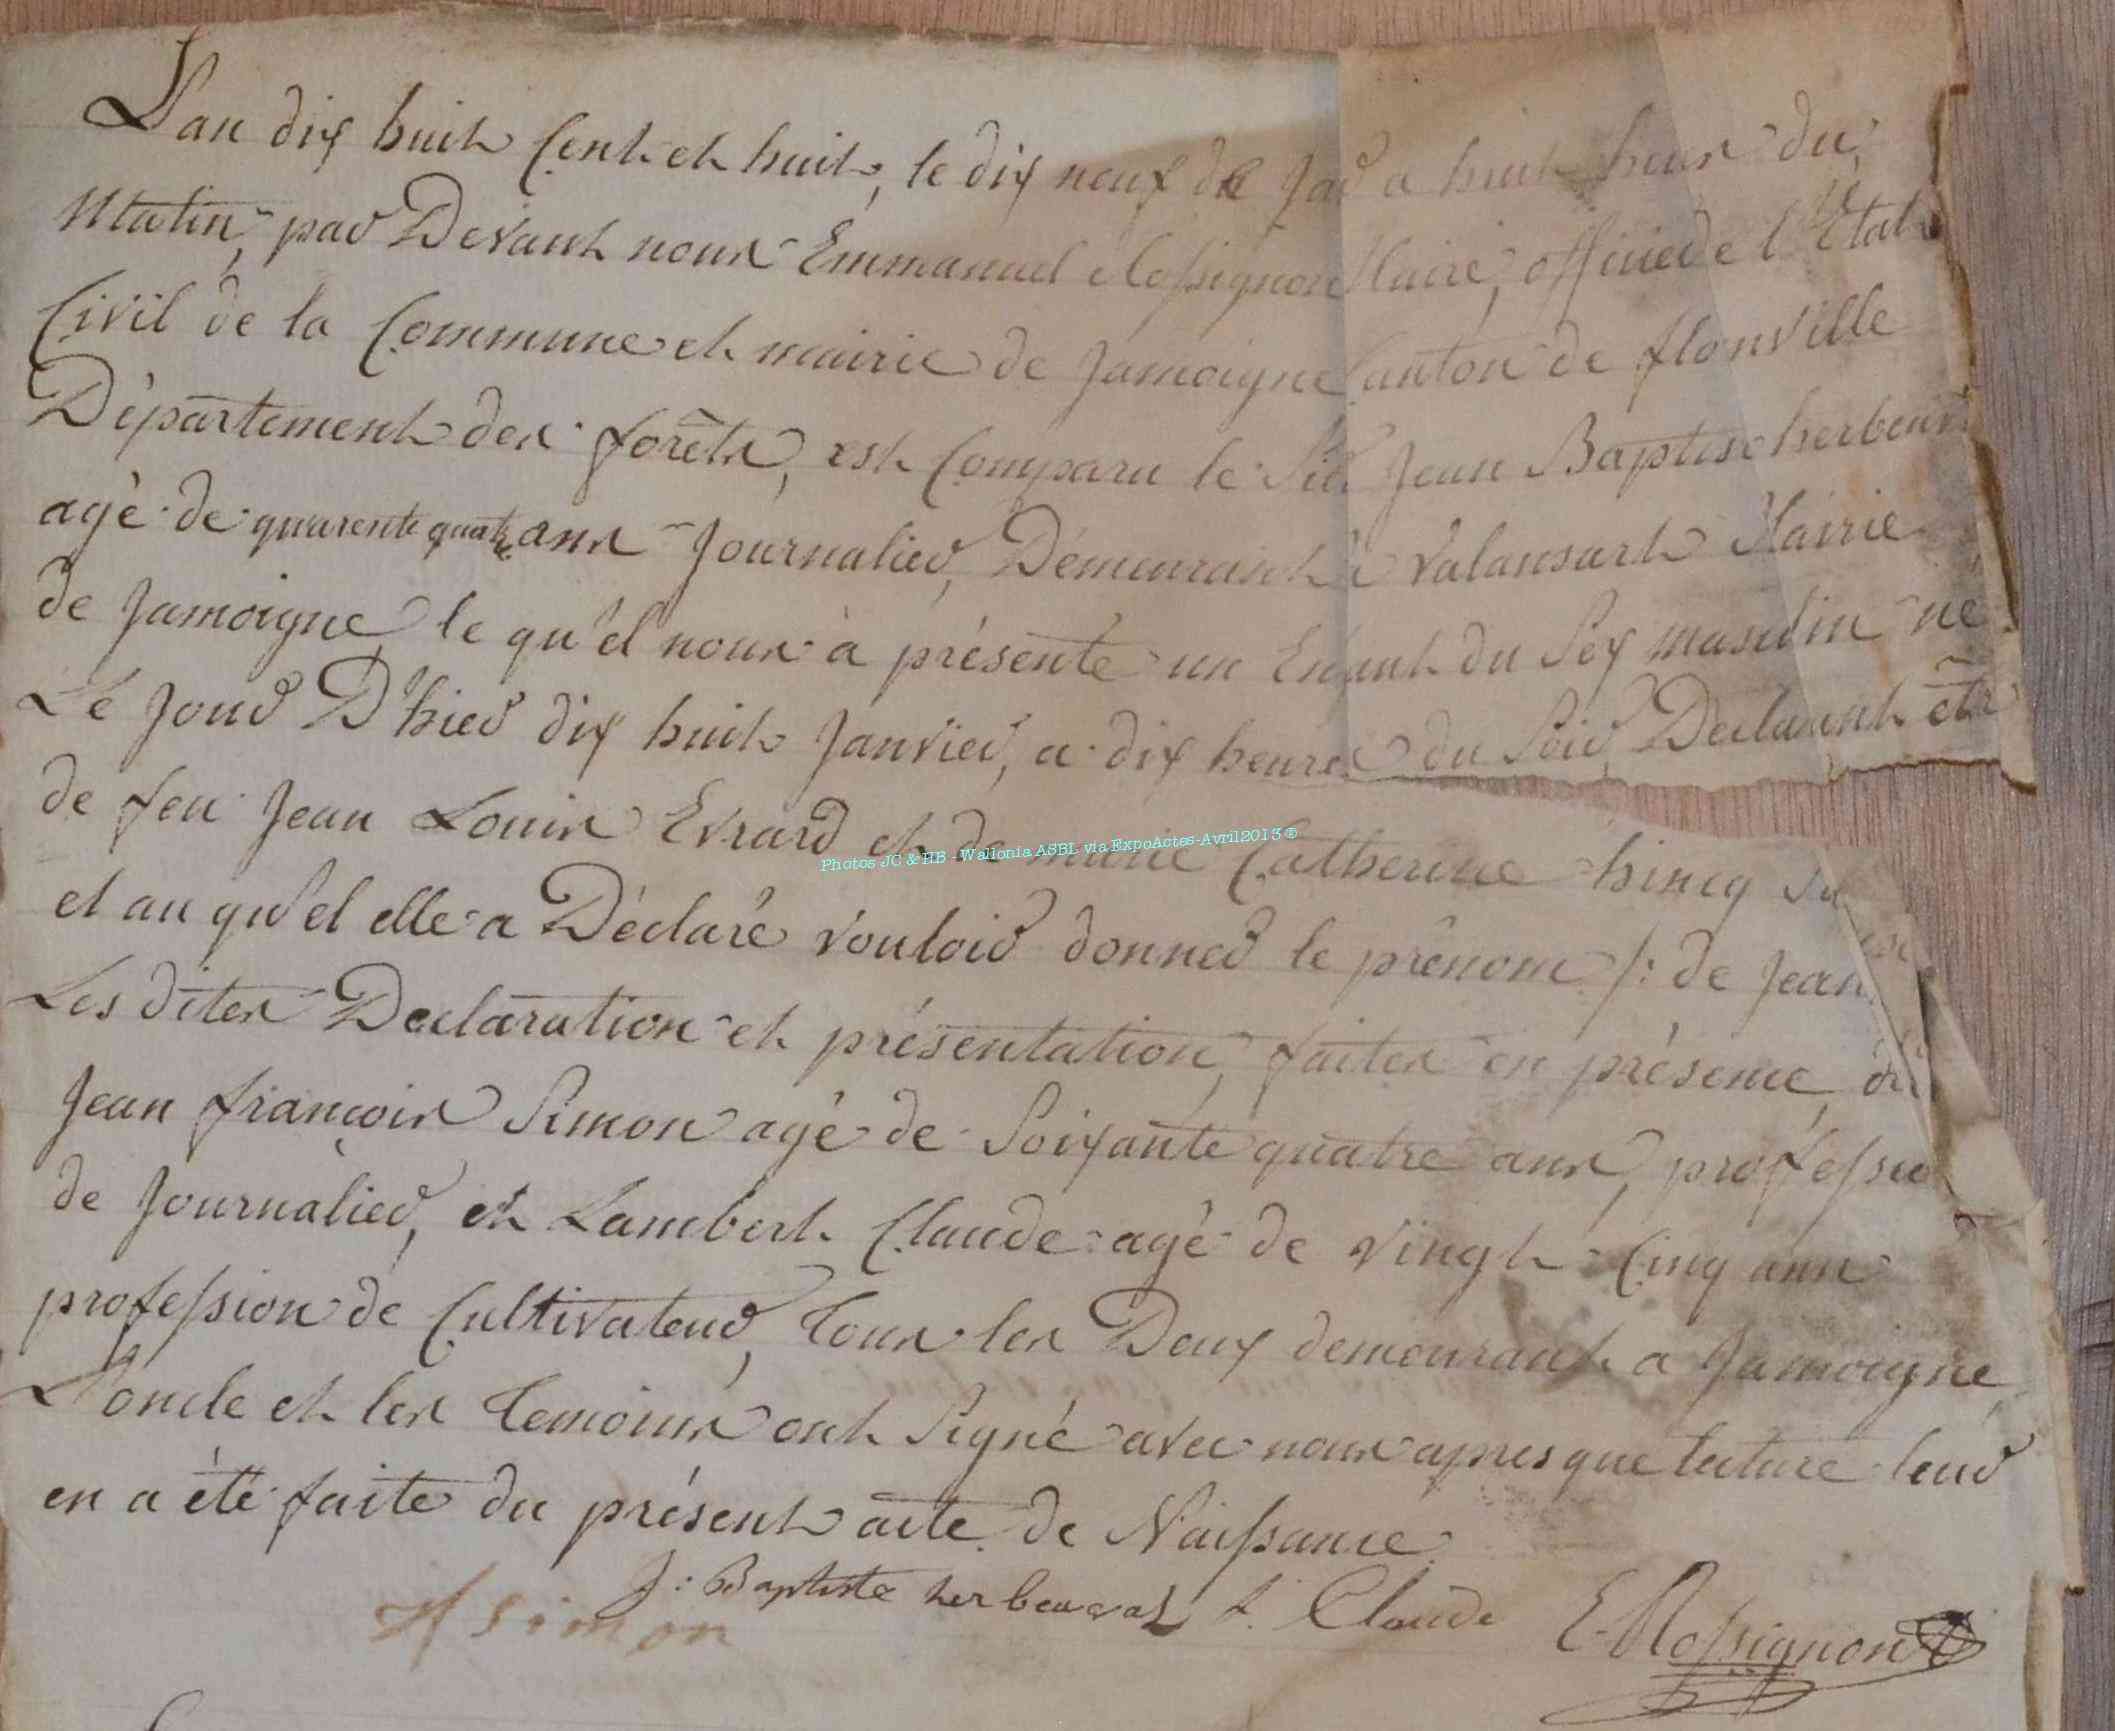 L'an dix huit Cent et huit, le dix neuf de a huit heur du
Matin, par Devant nous Emmanuel Rossignon Maire, officier de l'Etat
Civil de la Commune et mairie de Jamoigne Canton de florenville
Département des forêts, est Comparu le Sir Jean Baptise herbeu
agé de quarente quatre ans Journalier, Demeurant a Valansart Mairie
de Jamoigne, le qu'el nous à présenté un Enfant du Sex masculin né
Le Jour D'hier dix huit Janvier, a dix heures du Soir, Declarant etre
de feu Jean Louis Evrard et de marie Catherine hincq
et au qu'el elle a Déclaré vouloir donner le prénom /: de Jean
Les dites Declaration et présentation, faites en présence de
Jean françois Simon agé de Soixante quatre ans, professio
de Journalier, et Lambert Claude agé de vingt Cinq ans
profession de Cultivateur, tous les Deux demeurant a Jamoigne,
L'oncle et les temoins ont Signé avec nous apres que lecture leur
en a été faite du présent acte de Naissance.
J: Baptiste herbeuval L. Claude E. Rossignon
Simon
Photos JC & HB - Wallonia ASBL via ExpoActes-Avril2013 ®